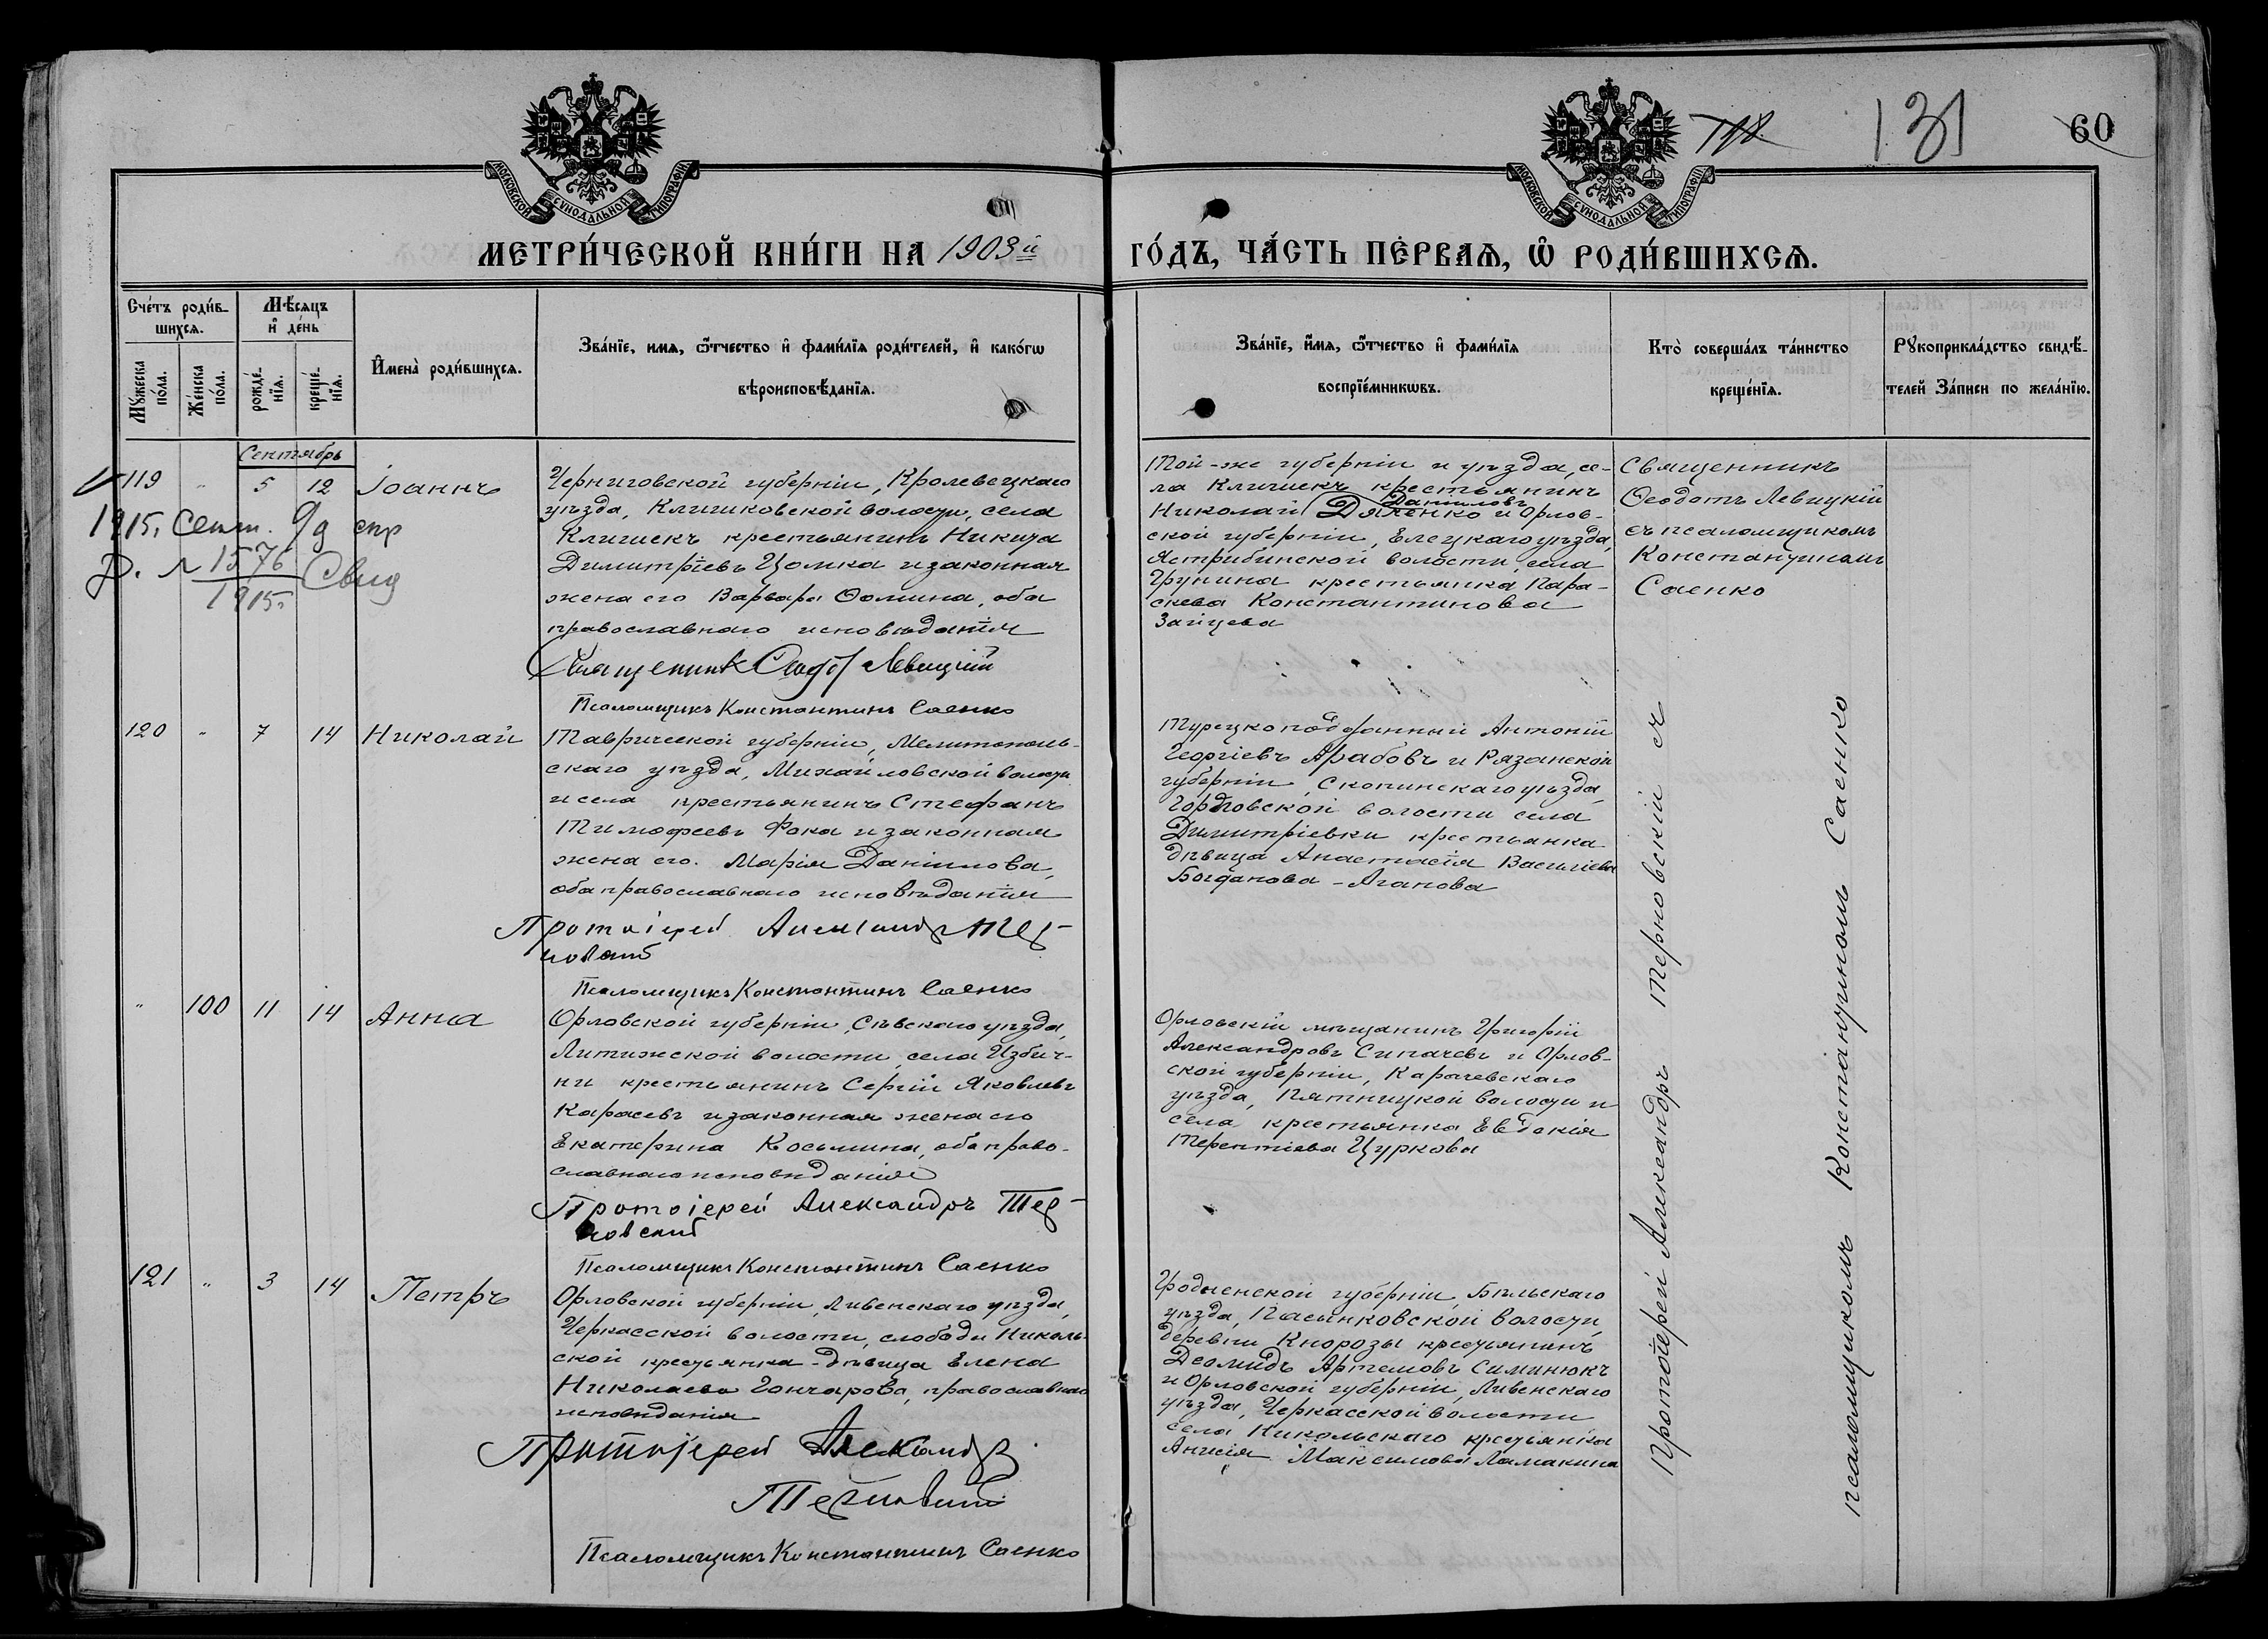 118
131
60
МОСКОВСКОЙ СУНОДАЛЬНОЙ ТИПОГРАФІИ
МОСКОВСКОЙ СУНОДАЛЬНОЙ ТИПОГРАФІИ
МЕТРИ́ЧЕСКОЙ КНИ́ГИ НА 1903й
ГО́ДЪ, ЧА́СТЬ ПЕ́РВАѦ, Ѡ҆ РОДИ́ВШИХСѦ.
Сче́тъ роди́в-
шихсѧ.
Мѣ́сѧцъ
и҆ де́нь
Мꙋ́жеска
по́ла.
Же́нска
по́ла.
рожде́-
нїѧ.
креще́-
нїѧ.
И҆мена̀ роди́вшихсѧ.
Зва́нїе, имѧ, ѻ҆́тчество и҆ фами́лїѧ роди́телей, и҆ како́гѡ
вѣроисповѣ́данїѧ.
Зва́нїе, и҆́мѧ, ѻ҆́тчество и҆ фами́лїѧ
воспрїе́мникѡвъ.
Кто̀ соверша́лъ та́инство
креще́нїѧ.
Рꙋкоприкла́дство свидѣ́-
телей За́писи по жела́нїю.
Сентябрь
119 " 5 12 Іоаннъ
1915, сент. 9 д спр
Р. № 1576 Свид
1915.
Черниговской губерніи, Кролевецкаго
уѣзда, Клишковской волости, села
Клишекъ крестьянинъ Никита
Димитріевъ Цомка и законная
жена его Варвара Ѳомина, оба
православнаго исповѣданія
Священник Ѳеодот Левицкій
Псаломщикъ Константинъ Саенко
Той-же губерніи и уѣзда, се-
ла Клишекъ крестьянинъ
Даниловъ
Николай Дяченко и Орлов-
ской губерніи, Елецкаго уѣзда,
Ястребинской волости, села
Грунина крестьянка Пара-
скева Константинова
Зайцева
Священникъ
Ѳеодотъ Левицкій
съ псаломщикомъ
Константиномъ
Саенко
120 " 7 14 Николай
Таврической губерніи, Мелитополь-
скаго уѣзда, Михайловской волости
и села крестьянинъ Стефанъ
Тимофеевъ Фока и законная
жена его Марія Даніилова,
оба православнаго исповѣданія
Протоіерей Александр Тер-
новскій
Псаломщикъ Константинъ Саенко
Турецкоподданный Антоній
Георгіевъ Арабовъ и Рязанской
губерніи, Скопинскаго уѣзда,
Горловской волости села
Димитріевки крестьянка
дѣвица Анастасія Васильева
Богданова-Агапова
" 100 11 14 Анна
Орловской губерніи, Сѣвскаго уѣзда,
Литижской волости, села Избич-
ни крестьянинъ Сергій Яковлевъ
Карасевъ и законная жена его
Екатерина Косьмина, оба право-
славнаго исповѣданія
Протоіерей Александръ Тер-
новскій
Псаломщикъ Константинъ Саенко
Орловскій мѣщанинъ Григорій
Александровъ Сипачевъ и Орлов-
ской губерніи, Карачевскаго
уѣзда, Пятницкой волости и
села крестьянка Евдокія
Терентіева Цуркова
121 " 3 14 Петръ
Орловской губерніи, Ливенскаго уѣзда,
Черкасской волости, слободы Николь-
ской крестьянка-дѣвица Елена
Николаева Гончарова, православнаго
исповѣданія
Протоіерей Александр
Терновскій
Псаломщикъ Константинъ Саенко
Гродненской губерніи, Бѣльскаго
уѣзда, Пасынковской волости,
деревни Кнорозы крестьянинъ
Деомидъ Артемовъ Симинюкъ
и Орловской губерніи, Ливенскаго
уѣзда, Черкасской волости
села Никольскаго крестьянка
Анисія Максимова Ламакина
Протоіерей Александръ Терновскій съ
псаломщикомъ Константиномъ Саенко